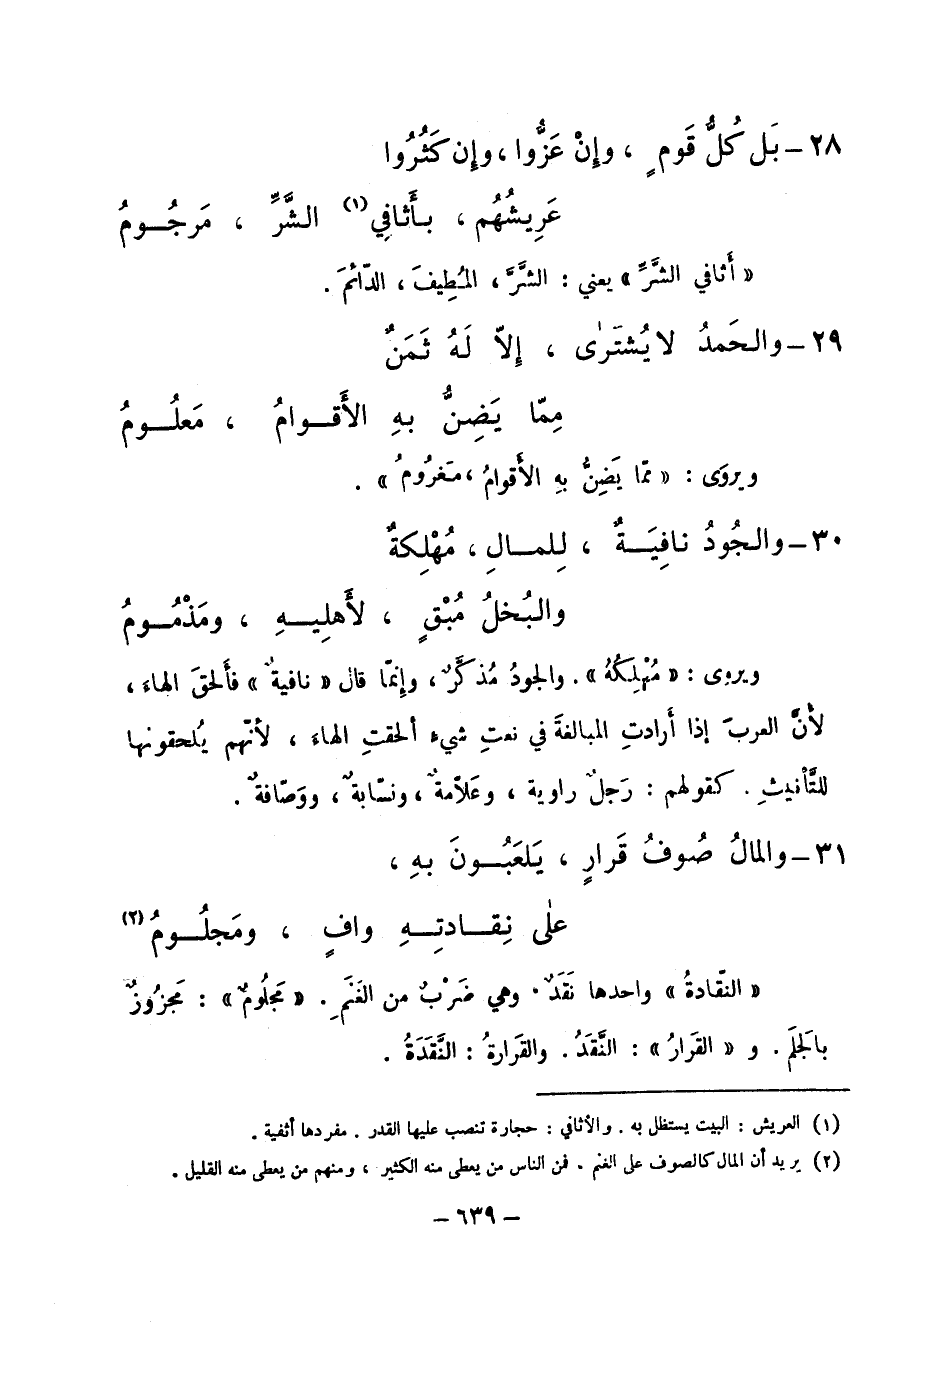 ٢٨ – بَل كُلُّ قَومٍ ، وإنْ عَزُّوا ، وإن كَثُرُوا
عَرِيشُهُم ، بـأَثافِي(١) الشَّرِّ ، مَرجُــومُ
« أَثافي الشَّرِّ » يعني : الشرَّ ، المُطِيفَ ، الدّائمَ .
٢٩ – والحَمدُ لا يُشتَرٰى ، إلاّ لَهُ ثَمَنٌ
مِمّا يَضِنُّ بهِ الأَقــوامُ ، مَعلُــومُ
ويروَى : « ممّا يَضِنُّ بهِ الأَقوامُ ، مَغرُومُ » .
٣٠ – والجُودُ نافِيَــةٌ ، لِلمــالِ ، مُهْلِكةٌ
والبُخلُ مُبْقٍ ، لأَهلِيــهِ ، ومَذْمُــومُ
ويروى : « مُهْلِكُهُ » . والجودُ مُذكَّرٌ ، وإنمّا قال « نافيةٌ » فأَلحقَ الهاءَ ،
لأَنَّ العربَ إذا أَرادتِ المبالغةَ في نعتِ شيءٍ ألحقتِ الهاءَ ، لأنّهم يُلحقونها
للتَّأنيثِ . كقولهم : رَجلٌ راوية ، وعَلاّمةٌ ، ونسّابةٌ ، ووَصّافةٌ .
٣١ – والمالُ صُوفُ قَرارٍ ، يَلعَبُــونَ بهِ ،
علٰى نِقــادتِــهِ وافٍ ، ومَجلُــومُ(٢)
« النّقادةُ » واحدها نَقَدٌ . وهي ضَرْبٌ من الغَنَمِ . « مَجلُومٌ » : مَجزُوزٌ
بالجَلَمِ . و « القَرارُ » : النَّقَدُ . والقَرارةُ : النَّقَدَةُ .
(١) العريش : البيت يستظل به . والأثافي : حجارة تنصب عليها القدر . مفردها أثفية .
(٢) يريد أن المال كالصوف على الغنم . فمن الناس من يعطى منه الكثير ، ومنهم من يعطى منه القليل .
– ٦٣٩ –